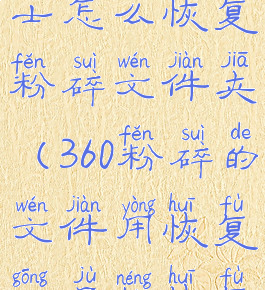 士怎么恢复
fěn suì wén jiàn jiā
粉碎文件夹
fěn suì de
(360粉碎的
wén jiàn yòng huī fù
文件用恢复
gōng jù néng huī fù